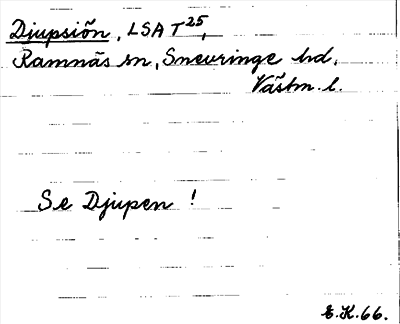 Djupsjön, LSA T25,
Ramnäs sn, Snevringe hd,
Västm. l.
Se Djupen !
E.K.66.